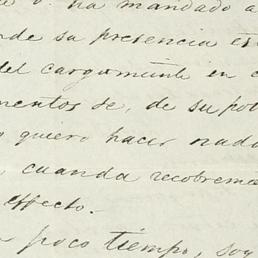 ha mandado a
de su presencia es
del cargamente en c
mentos se, de su pot
quiero hacer nada
cuanda recobreme
effecto.-
poco tiempo, soy